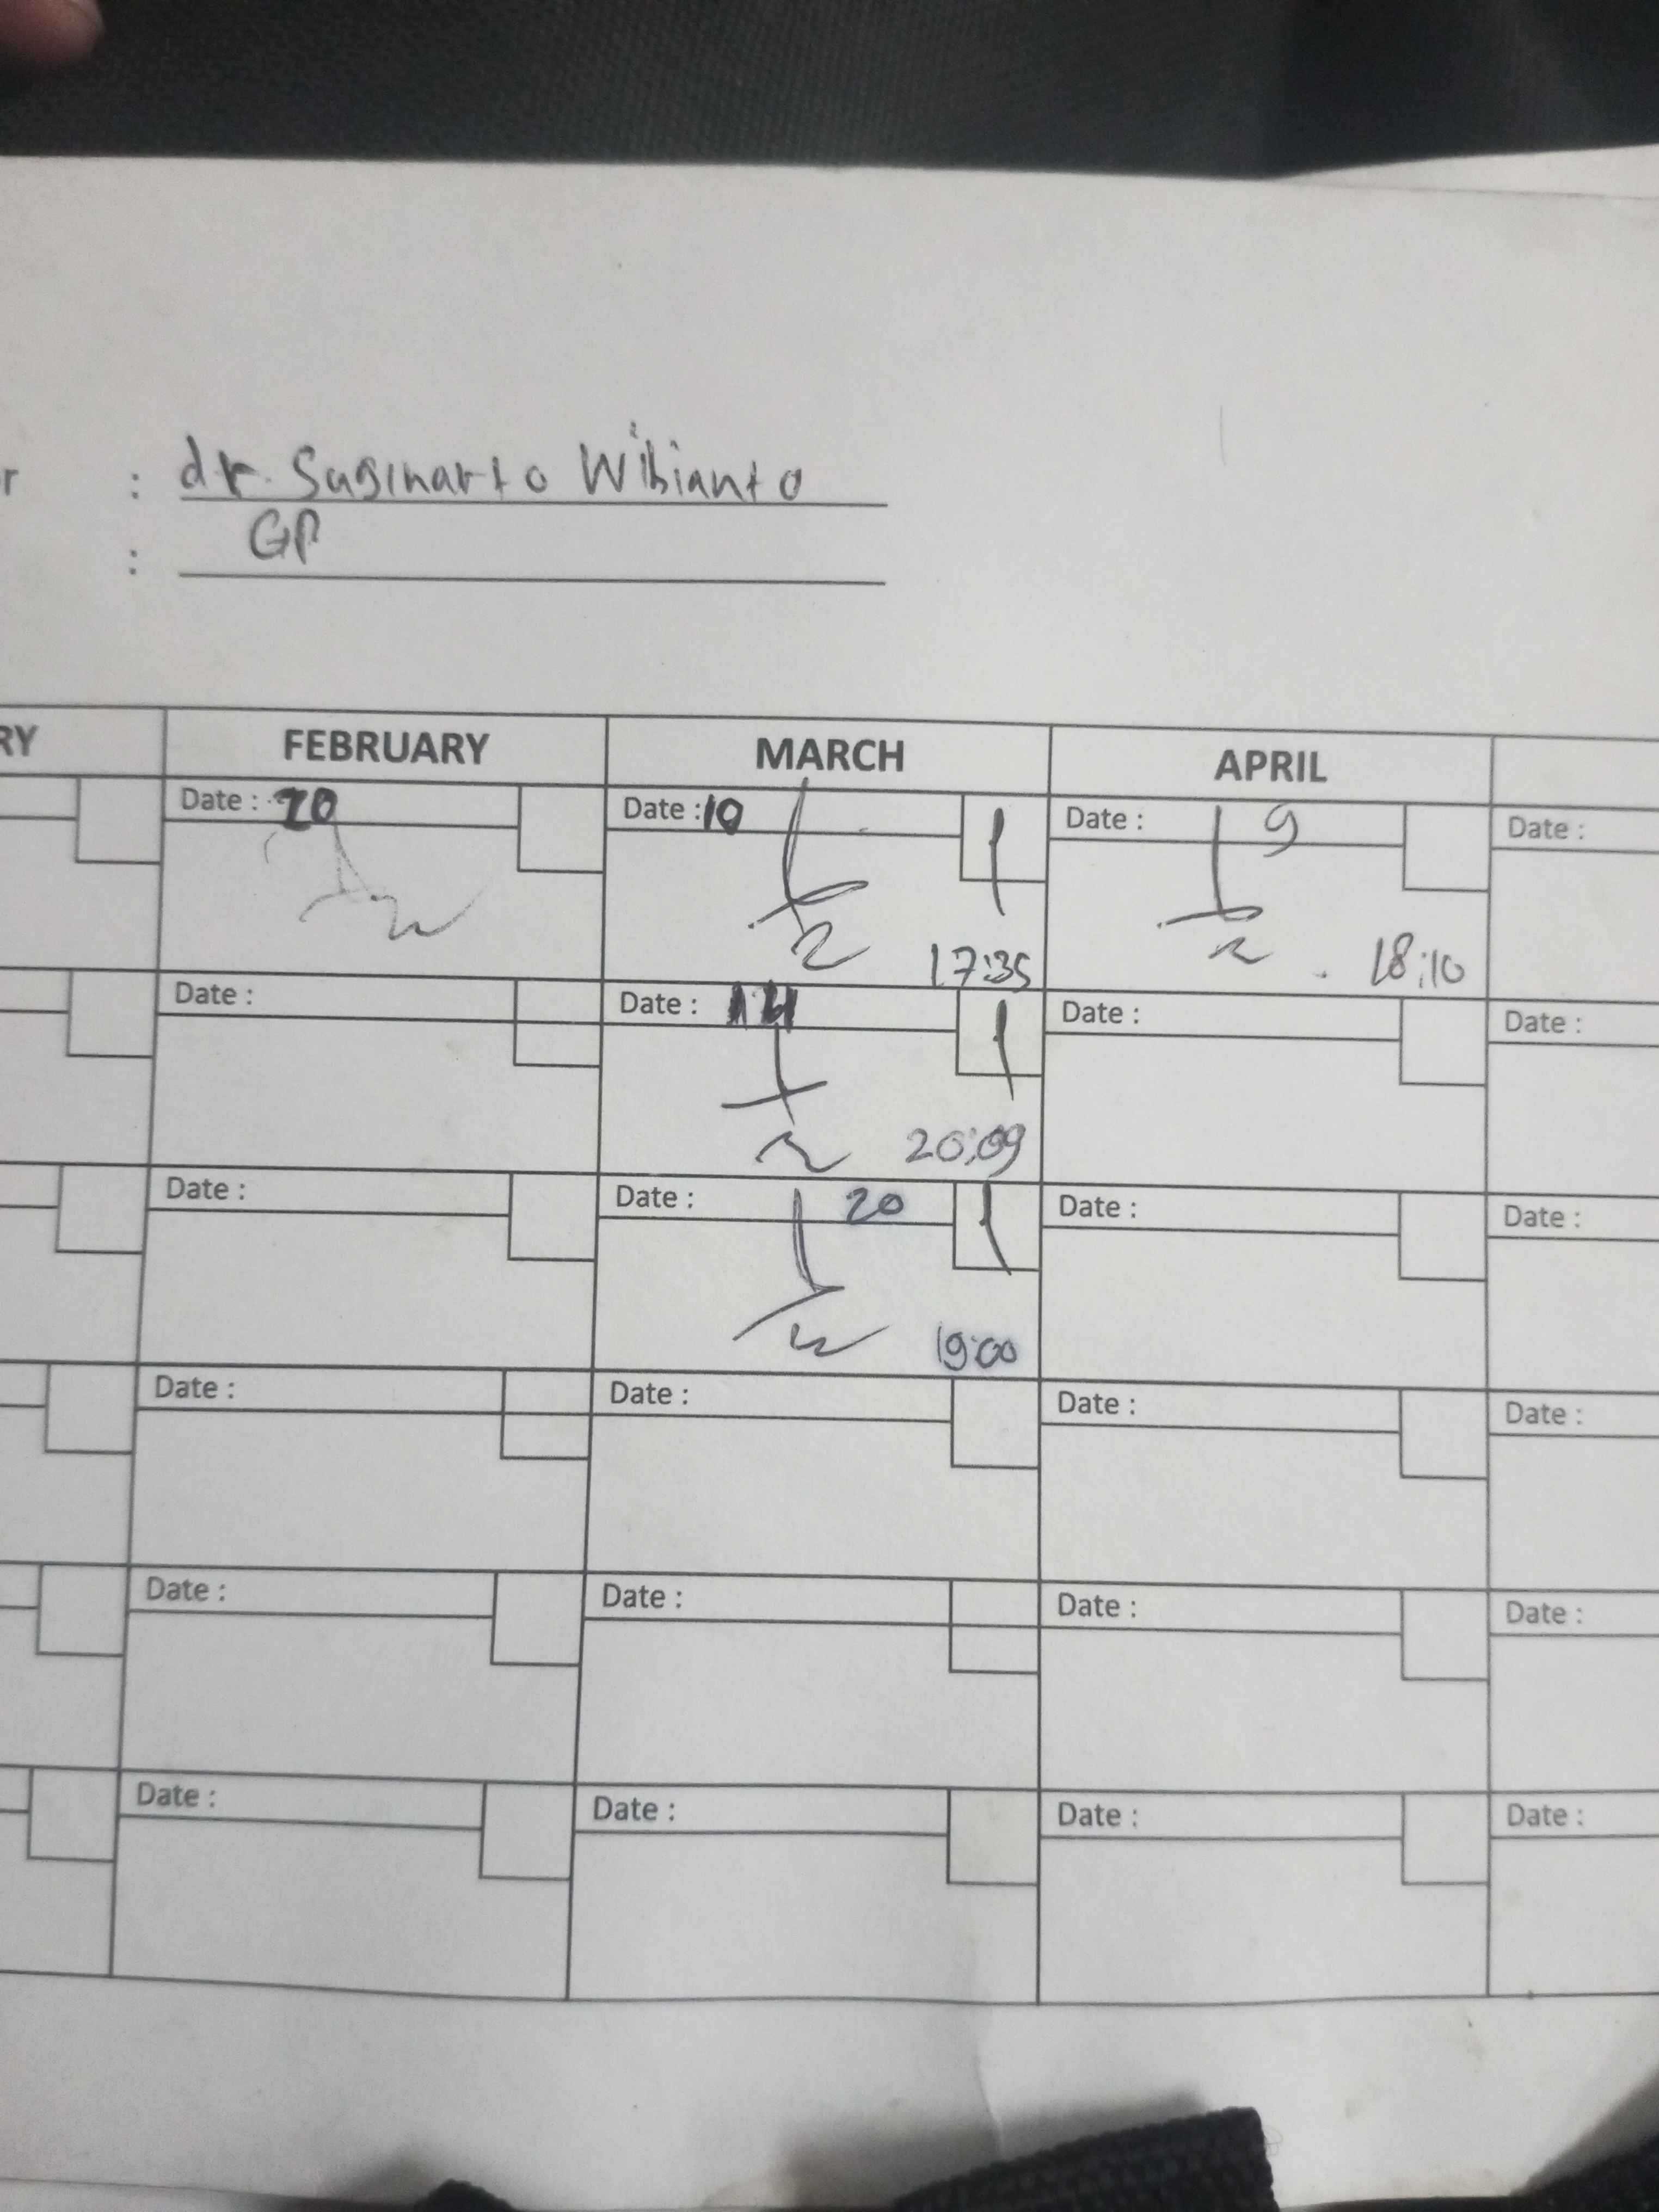 r : dr. Suginarto Wibianto
: GP
RY FEBRUARY MARCH APRIL
Date : 20 Date : 10 Date : 9 Date :
17:35 18:10
Date : Date : Date : Date :
20:09
Date : Date : 20 Date : Date :
19:00
Date : Date : Date : Date :
Date : Date : Date : Date :
Date : Date : Date : Date :